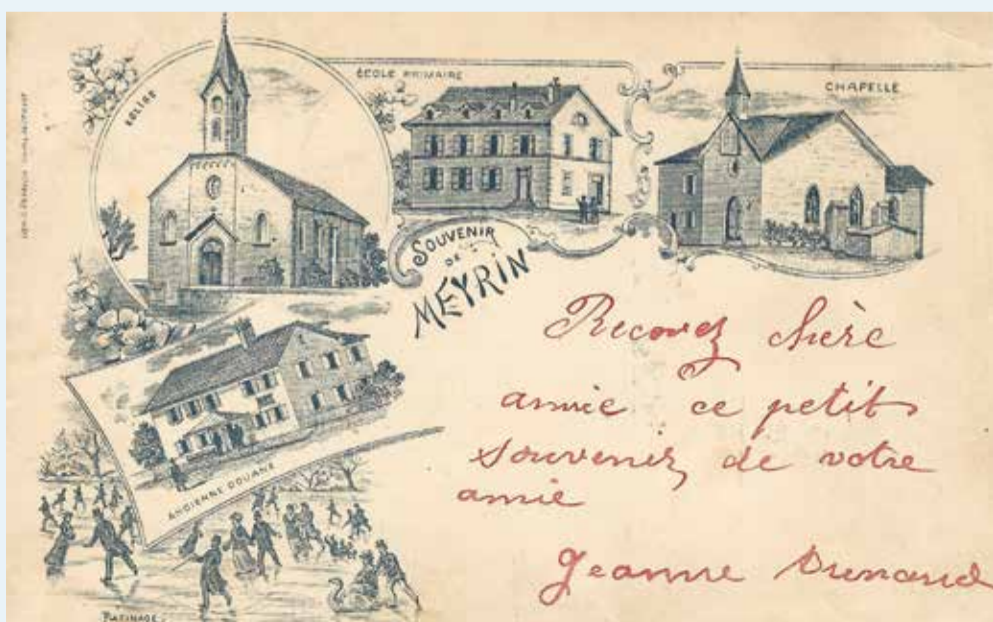 EGLISE
ÉCOLE PRIMAIRE
CHAPELLE
SOUVENIR
DE
MEYRIN
ANCIENNE DOUANE
PATINAGE
Recevez chère
amie ce petit
souvenir de votre
amie
Jeanne